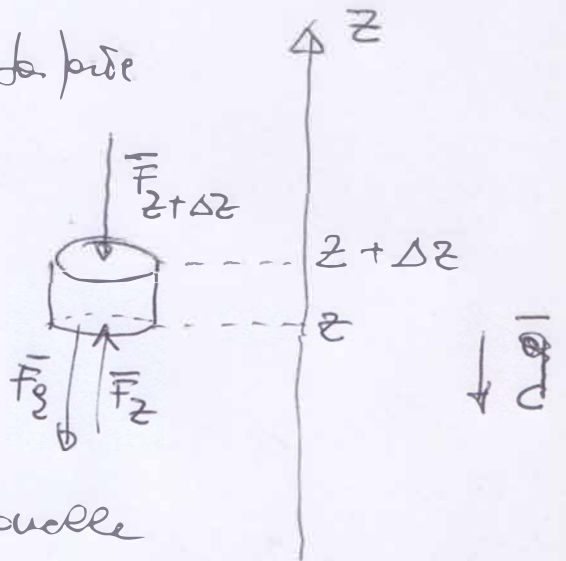 Z
F̄ z+Δz
z + Δz
z
F̄g F̄z
ḡ